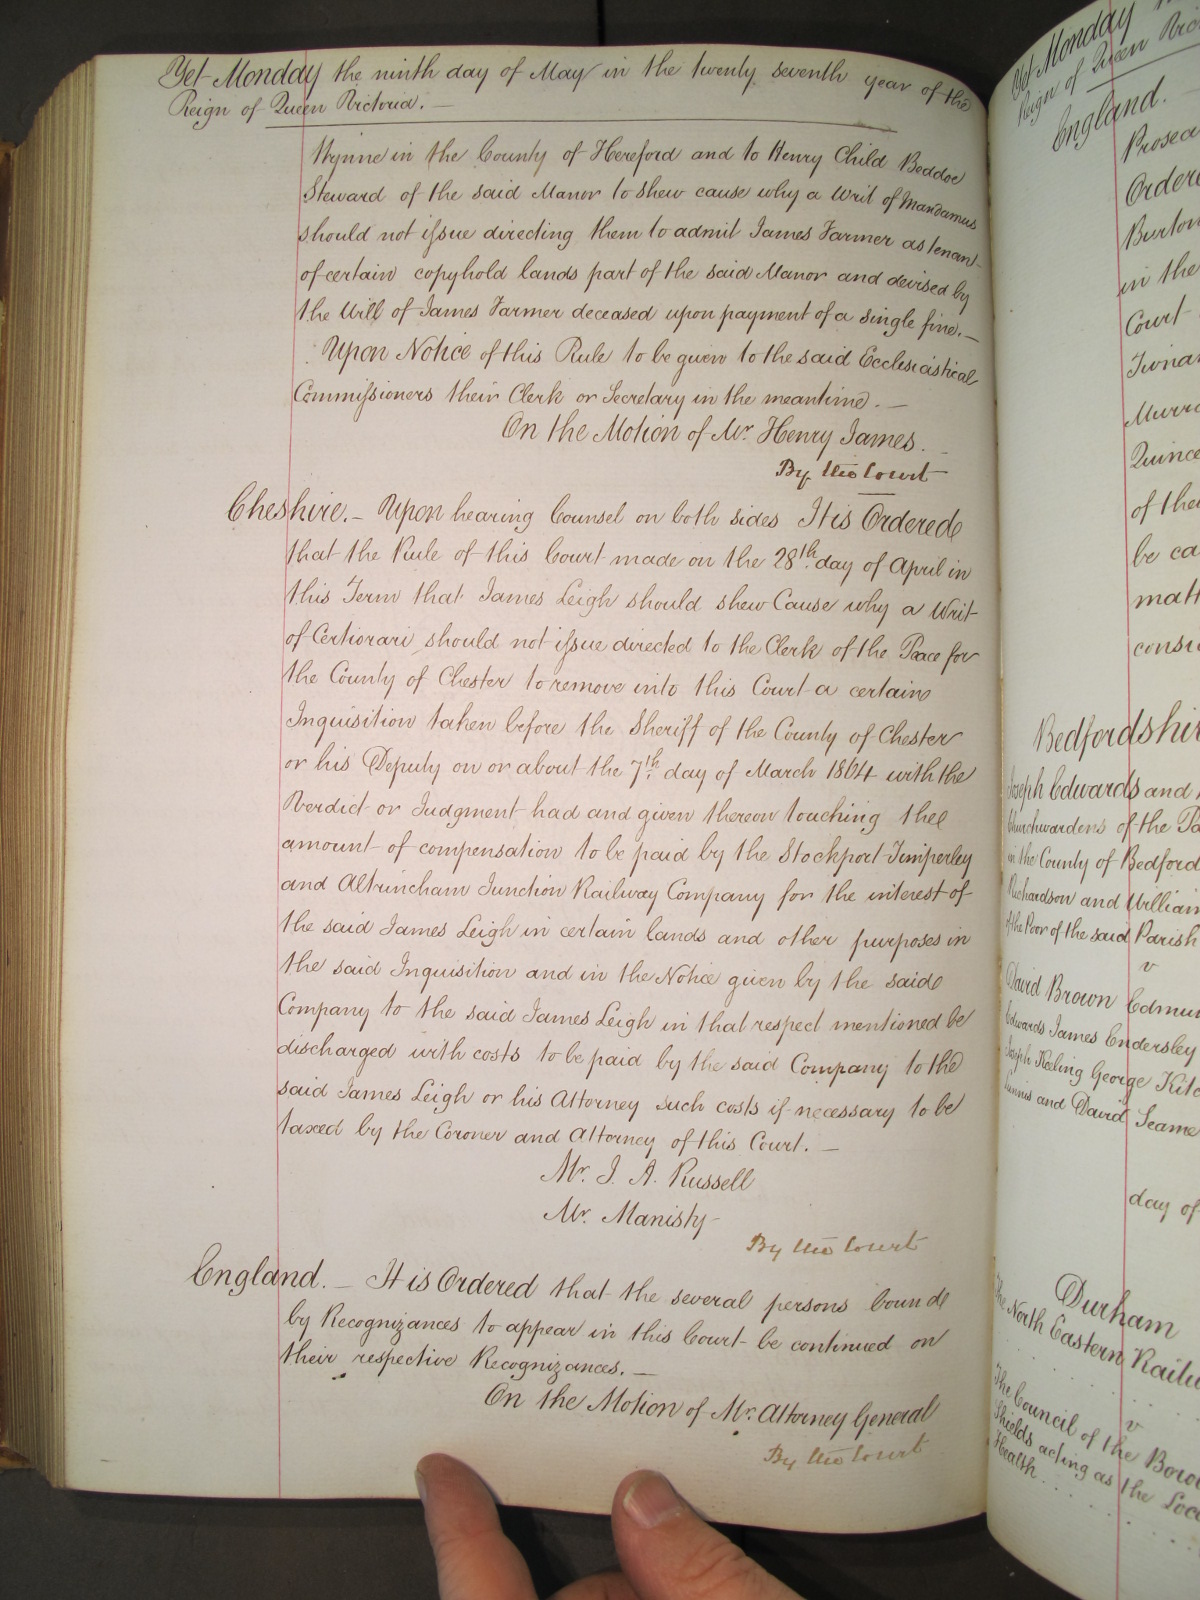 Yet Monday the ninth day of May in the twenty seventh year of the
Reign of Queen Victoria. —
Wynne in the County of Hereford and to Henry Child Beddoe
Steward of the said Manor to shew cause why a Writ of Mandamus
should not issue directing them to admit James Farmer as tenant
of certain copyhold lands part of the said Manor and devised by
the Will of James Farmer deceased upon payment of a single fine. —
Upon Notice of this Rule to be given to the said Ecclesiastical
Commissioners their Clerk or Secretary in the meantime. —
On the Motion of Mr. Henry James.
By the Court
Cheshire. — Upon hearing Counsel on both sides It is Ordered
that the Rule of this Court made on the 28th day of April in
this Term that James Leigh should shew Cause why a Writ
of Certiorari should not issue directed to the Clerk of the Peace for
the County of Chester to remove into this Court a certain
Inquisition taken before the Sheriff of the County of Chester
or his Deputy on or about the 7th day of March 1864 with the
Verdict or Judgment had and given thereon touching thee
amount of compensation to be paid by the Stockport Timperley
and Altrincham Junction Railway Company for the interest of
the said James Leigh in certain lands and other purposes in
the said Inquisition and in the Notice given by the said
Company to the said James Leigh in that respect mentioned be
discharged with costs to be paid by the said Company to the
said James Leigh or his Attorney such costs if necessary to be
taxed by the Coroner and Attorney of this Court. —
Mr. J. A. Russell
Mr. Manisty
By the Court
England. — It is Ordered that the several persons bound
by Recognizances to appear in this Court be continued on
their respective Recognizances. —
On the Motion of Mr. Attorney General
By the Court
Yet Monday
Reign of Queen
England.
Ordere
Burton
in the
Court
Murra
Quince
of the
be ca
matt
Bedfordshir
Joseph Edwards and
Churchwardens of the Pa
in the County of Bedford
Richardson and William
of the Poor of the said Parish
v
David Brown Edmun
Edwards James Endersley
Joseph Keeling George Kitc
and David Seame
day of
Durham
The North Eastern Railw
v
The Council of the Borou
Shields acting as the Loca
Health